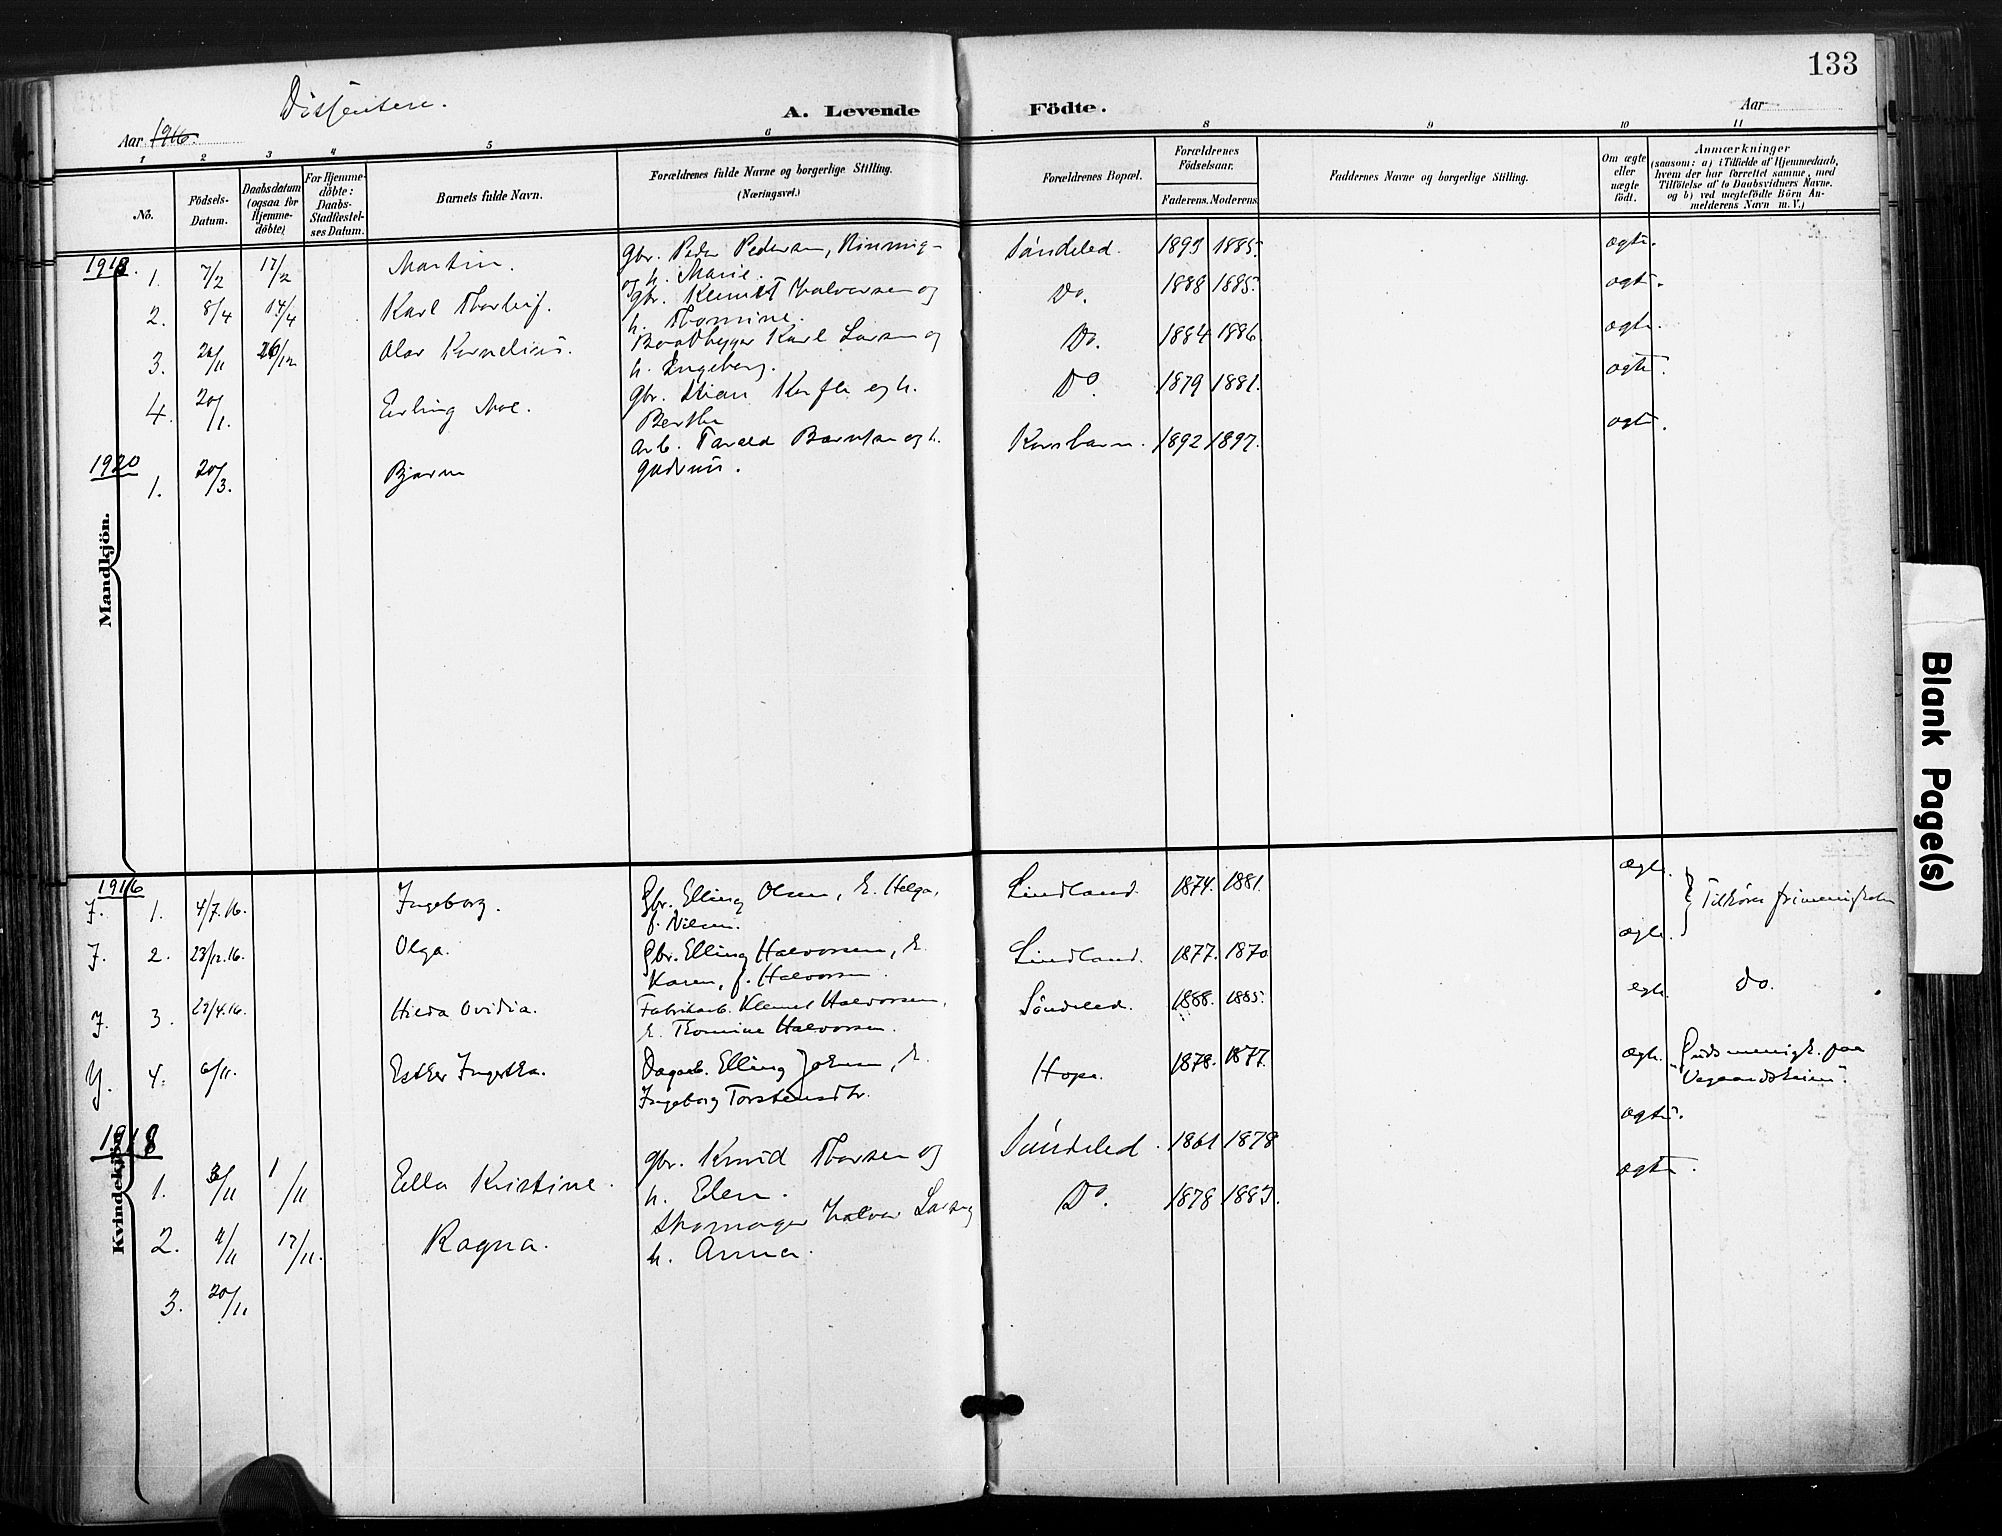 133
Dissentere.
A. Levende Födte.
Aar 1916.
Aar
1 2 3 4 5 6 8 9 10 11
No.
Födsels-Datum.
Daabsdatum (ogsaa for Hjemme-döbte)
For Hjemme-döbte: Daabs-Stadfæstel-ses Datum.
Barnets fulde Navn.
Forældrenes fulde Navne og borgerlige Stilling.
(Næringsvei.)
Forældrenes Bopæl.
Forældrenes Födselsaar.
Faderens. Moderens.
Faddernes Navne og borgerlige Stilling.
Om ægte eller uægte födt.
Anmærkninger
(saasom: a) i Tilfælde af Hjemmedaab,
hvem der har forrettet samme, med
Tilföielse af to Daabsvidners Navne,
og b) ved uægtefödte Börn An-
melderens Navn m. V.)
1918.
1. 7/2 17/2 Martin. Gbr. Peder Pedersen, og h. Marie. Söndeled. 1893 1885. ægte.
2. 8/4 14/4 Karl Thorleif. Gbr. Klemet Halvorsen og h. Thomine. Do. 1888 1885. ægte.
3. 26/12 Olav Kornelius. Baadbygger Karl Larsen og h. Ingeborg. Do. 1884 1886. ægte.
4. 20/11. Erling Moe. Gbr. og h. Bertha Do. 1879 1881. ægte.
1920
1. 20/3. Bjarne arb. Tarald og h. Gudrun. 1892 1897. ægte.
Mandkjön.
1916
F. 1. 4/7.16. Ingeborg. Gbr. Elling Olsen, h. Helga, f. Nilsen. Lindland. 1874. 1881. ægte. Tilhörer frimenigheden
F. 2. 23/12.16. Olga. Gbr. Elling Halvorsen, h. Karen, f. Halvorsen. Lindland. 1877. 1870. ægte.
F. 3. 23/4.16. Hilda Ovidia. Fabrikarb. Klemet Halvorsen, h. Thomine Halvorsen. Söndeled. 1888. 1885. ægte. do.
4. 6/11. Ester Dagarb. Elling h. Ingeborg Torstensdtr. Hope. 1878. 1877. ægte. Gudsmenigh. paa "Vegaardsheim".
1918
1. 3/11 1/11 Ella Kristine. Gbr. Knud Thorsen og h. Elen. Söndeled. 1861 1878 ægte.
2. 4/11 17/11. Ragna. Skomager Halvor Larsen h. Anna. Do. 1878 1883. ægte.
3. 20/11
Kvindekjön.
Blank Page(s)